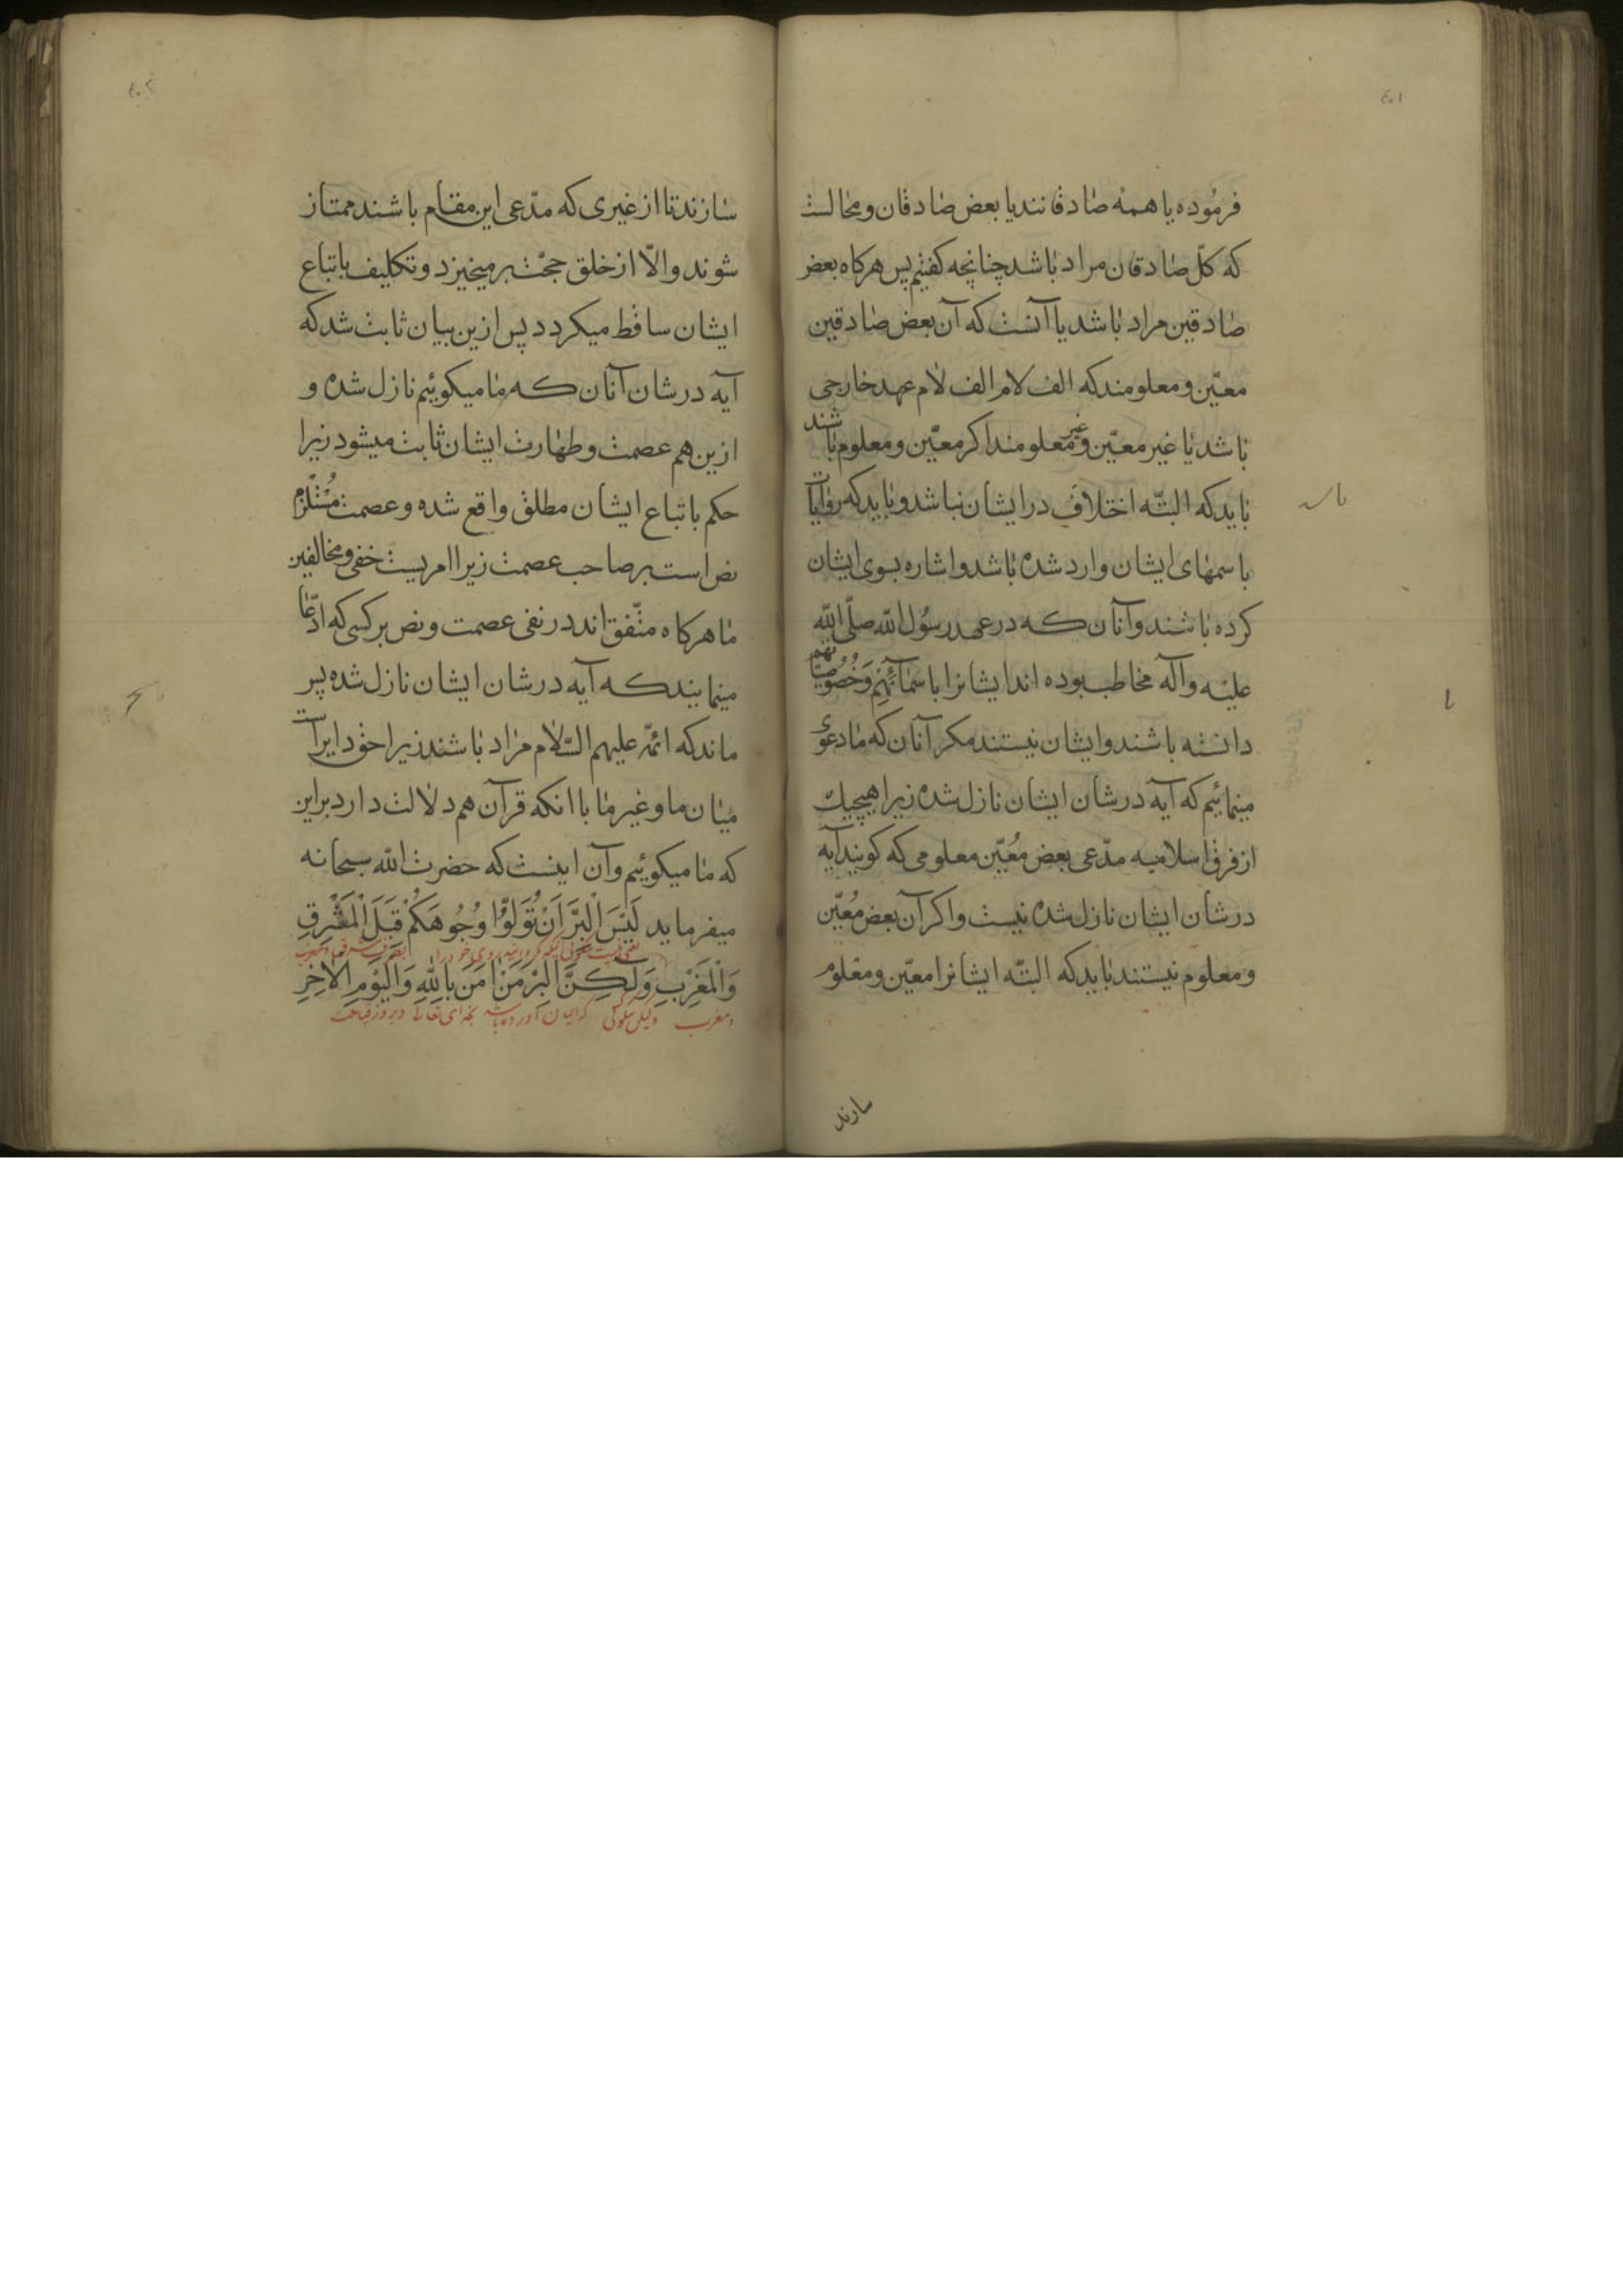 ۴۰۱
فرموده یا همه صادقانند یا بعض صادقان و محالست
که کلّ صادقان مراد باشد چنانچه کفتیم پس هرکاه بعض
صادقین مراد باشد یا آنست که آن بعض صادقین
معیّن و معلومند که الف لام الف لام عهد خارجی
باشد یا غیر معیّن و غیر معلومند اکر معیّن و معلوم باشند
باید که البتّه اختلاف در ایشان نباشد و باید که روایات
باسمهای ایشان وارد شده باشد و اشاره بسوی ایشان
کرده باشند و آنان که در عهد رسول الله صلّی الله
علیه و آله مخاطب بوده اند ایشانرا باسمآئهم و خُصوصیّاتهم
دانسته باشند و ایشان نیستند مکر آنان که ما دعوی
مینمائیم که آیه در شان ایشان نازل شده زیرا هیچیك
از فرق اسلامیه مدّعی بعض مُعیّن معلومی که کویند آیه
در شان ایشان نازل شده نیست و اکر آن بعض مُعیّن
و معلوم نیستند باید که البتّه ایشانرا معیّن و معلوم
سازند
۴۰۲
سازند تا از غیری که مدّعی این مقام باشند ممتاز
شوند و الّا از خلق حجّت برمیخیزد و تکلیف باتباع
ایشان ساقط میکردد پس ازین بیان ثابت شد که
آیه در شان آنان که ما میکوئیم نازل شده و
ازین هم عصمت و طهارت ایشان ثابت میشود زیرا
حکم باتباع ایشان مطلق واقع شده و عصمت مُستلزم
نص است بر صاحب عصمت زیرا امریست خفی و مخالفین
ما هرکاه متّفق اند در نفی عصمت و نص بر کسی که ادّعا
مینمایند که آیه در شان ایشان نازل شده پس
ماند که ائمّه علیهم السّلام مراد باشند زیرا حق دایر است
میان ما و غیر ما با انکه قرآن هم دلالت دارد براین
که ما میکوئیم و آن اینست که حضرت الله سبحانه
میفرماید لَیْسَ الْبِرَّ اَنْ تُوَلُّوا وُجُوهَکُمْ قِبَلَ الْمَشْرِقِ
وَالْمَغْرِبِ وَلٰکِنَّ الْبِرَّ مَنْ اٰمَنَ بِاللّٰهِ وَالْیَوْمِ الْاٰخِرِ
و مغرب ولیکن نیکوئی که ایمان آورده باشد بخدای تعالی و بروز قیامت